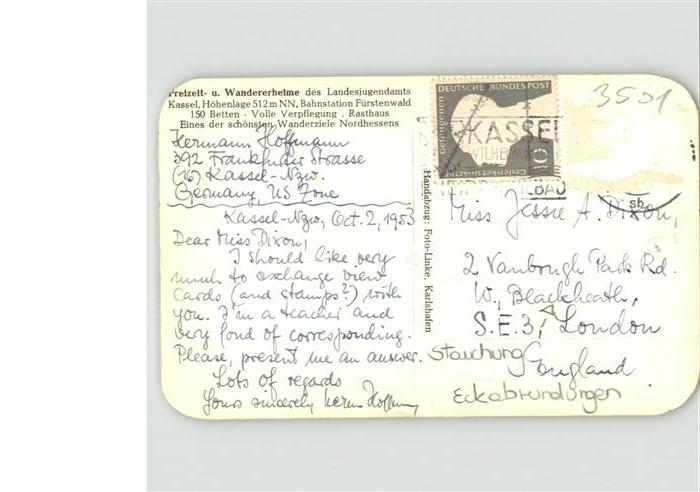 Freizeit- u. Wandererheime des Landesjugendamts
Kassel, Höhenlage 512 m NN, Bahnstation Fürstenwald
150 Betten · Volle Verpflegung . Rasthaus
Eines der schönsten Wanderziele Nordhessens
Hermann Hoffmann
392 Frankfurter Strasse
(16) Kassel-Nzw.
Germany, US Zone
Kassel-Nzw, Oct. 2, 1953
Dear Miss Dixon,
I should like very
much to exchange view
cards (and stamps?) with
you. I'm a teacher and
very fond of corresponding.
Please, present me an answer.
Lots of regards
Yours sincerely Herm. Hoffmann
Handabzug: Foto-Linke, Karlshafen
DEUTSCHE BUNDESPOST
10
KASSEL
WILH
BAD
sb
3501
Miss Jessie A. Dixon,
2 Vanbrugh Park Rd.
W., Blackheath,
S.E.3, London
England
Stauchung
Eckabrundungen